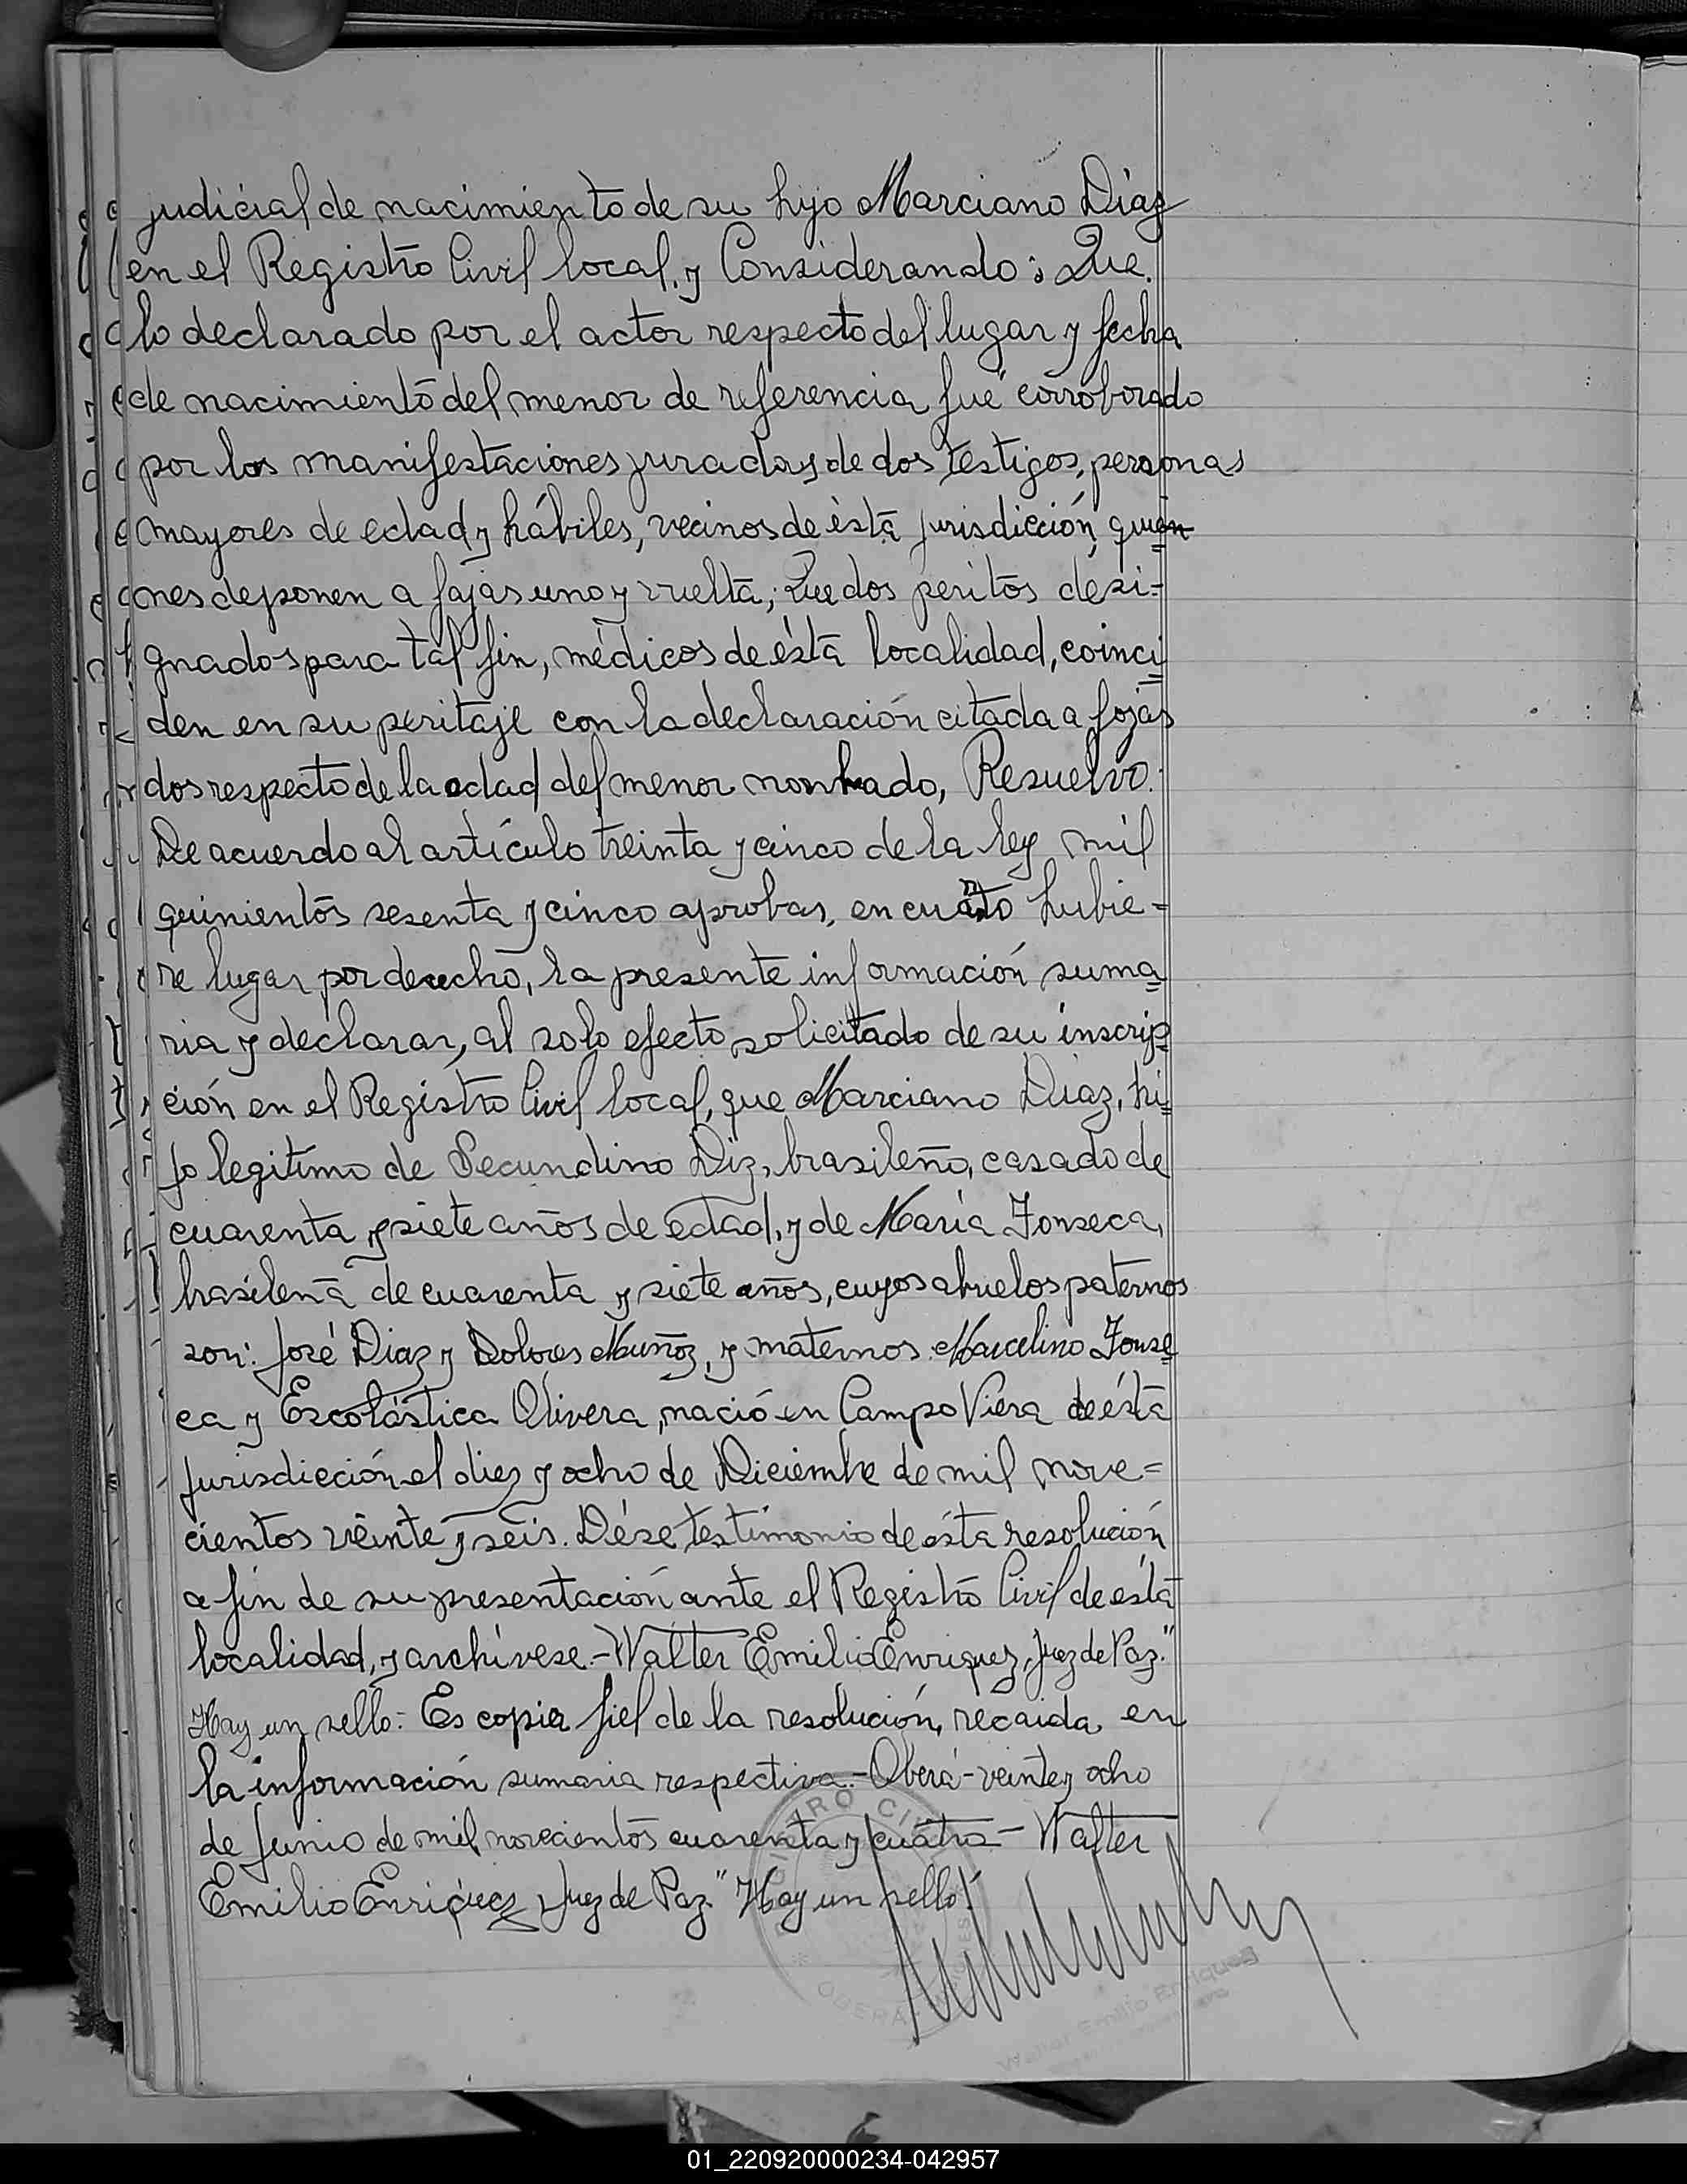 judicial de nacimiento de su hijo Marciano Diaz
en el Registro Civil local, y Considerando: Que
lo declarado por el actor respecto del lugar y fecha
de nacimiento del menor de referencia fué corroborado
por las manifestaciones juradas de dos testigos, personas
mayores de edad y hábiles, vecinos de ésta jurisdicción, quien
nes deponen a fojas uno y vuelta; Que dos peritos desi=
gnados para tal fin, médicos de ésta localidad, coinci
den en su peritaje con la declaración citada a fojas
dos respecto de la edad del menor nombrado, Resuelvo:
De acuerdo al artículo treinta y cinco de la ley mil
quinientos sesenta y cinco aprobar, en cuanto hubie=
re lugar por derecho, la presente información suma
ria y declarar, al solo efecto solicitado de su inscrip
ción en el Registro Civil local, que Marciano Diaz, hi
jo legitimo de Secundino Diz, brasileño, casado de
cuarenta y siete años de edad, y de María Fonseca,
brasileña de cuarenta y siete años, cuyos abuelos paternos
son: José Diaz y Dolores Muñoz, y maternos Marcelino Fonse
ca y Escolástica Olivera, nació en Campo Viera de ésta
jurisdicción el diez y ocho de Diciembre de mil nove=
cientos veinte y seis. Dése testimonio de ésta resolución
a fin de su presentación ante el Registro Civil de ésta
localidad, y archívese.- Walter Emilio Enriquez, Juez de Paz."
Hay un sello.- Es copia fiel de la resolución, recaida en
la información sumaria respectiva.- Oberá - veinte y ocho
de Junio de mil novecientos cuarenta y cuatro - Walter
Emilio Enriquez Juez de Paz." "Hay un sello".
REGISTRO CIVIL
OBERA
Walter Emilio Enriquez
01_220920000234-042957